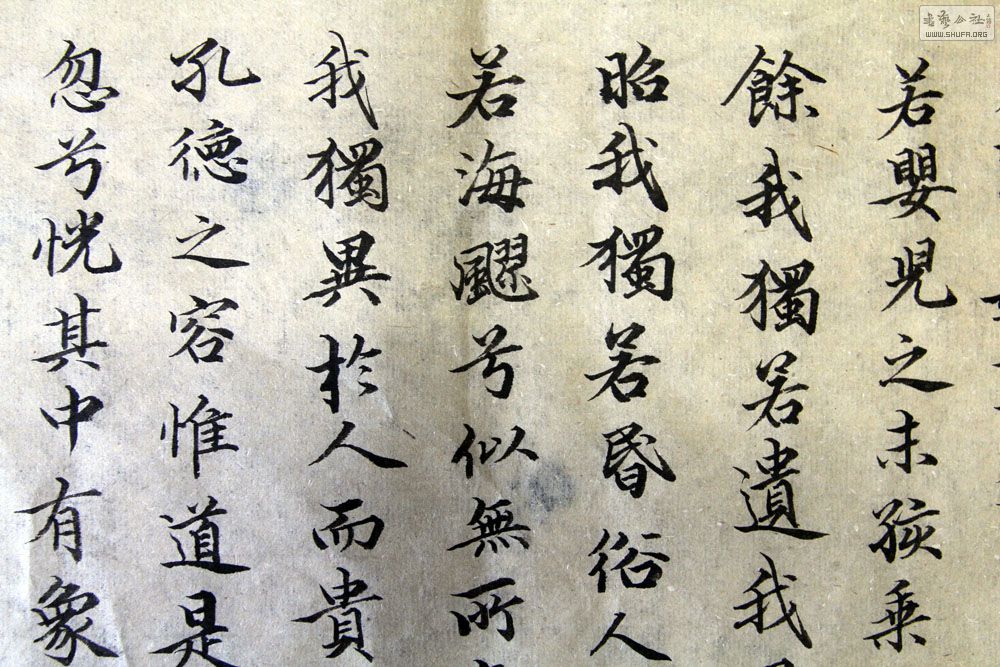 若嬰兒之未孩乗
餘我獨若遺我
昭我獨若昏俗人
若海飂兮似無所
我獨異於人而貴
孔德之容惟道是
忽兮恍其中有象
WWW.SHUFA.ORG